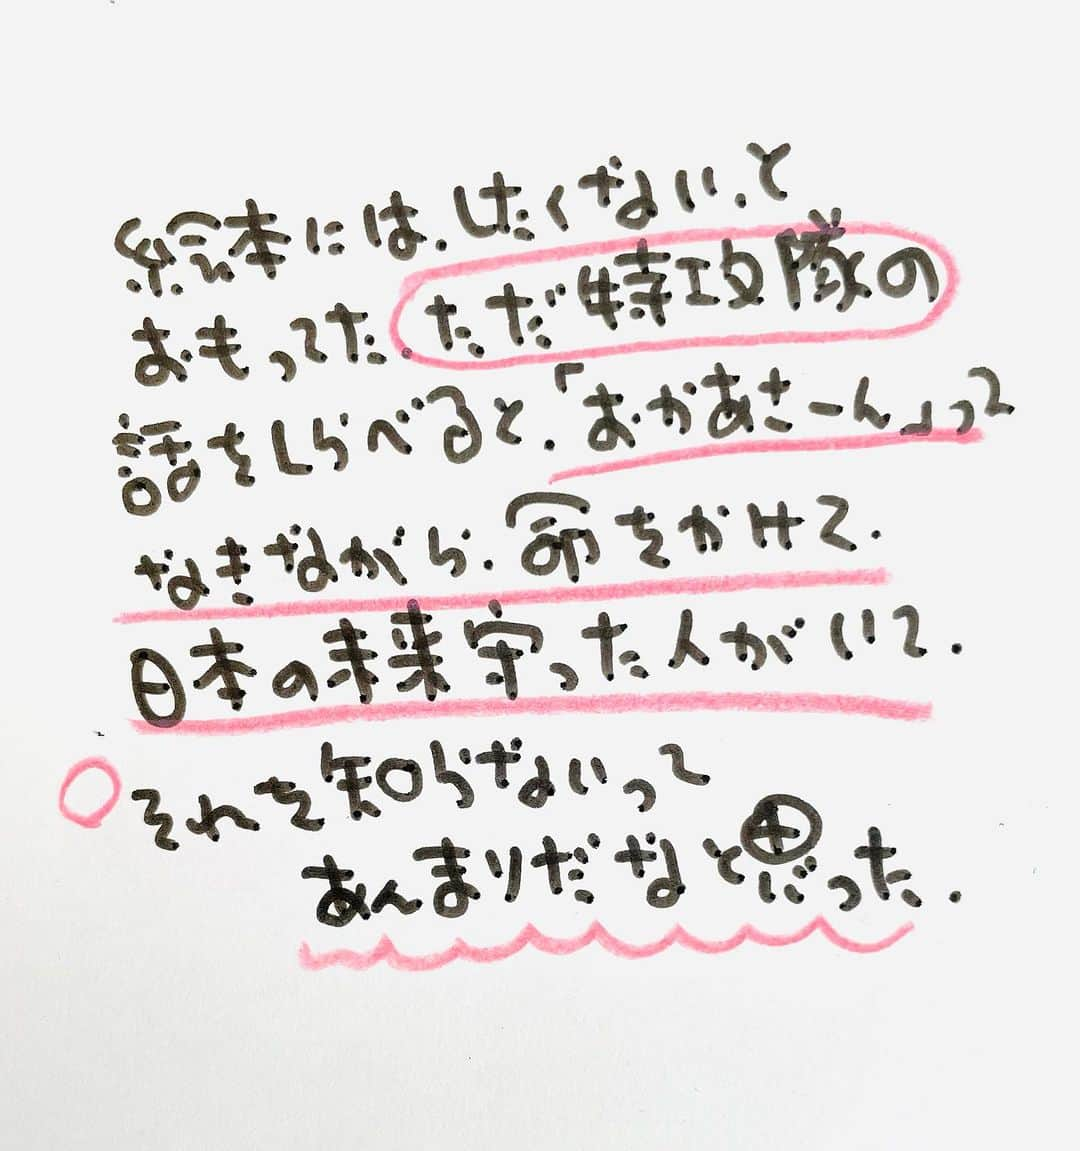 絵本には.したくない.と
おもってた.ただ特攻隊の
話をしらべると.「おかあさーん」って
なきながら.命をかけて.
日本の未来守った人がいて.
それを知らないって
あんまりだなと思った.